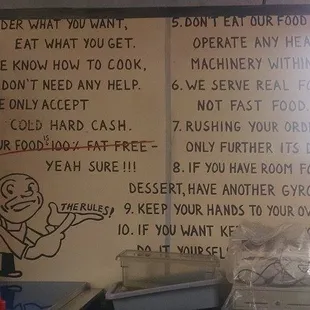 DER WHAT YOU WANT,
EAT WHAT YOU GET.
E KNOW HOW TO COOK,
DON'T NEED ANY HELP.
E ONLY ACCEPT
COLD HARD CASH.
UR FOOD IS 100% FAT FREE -
YEAH SURE!!!
THE RULES!
5. DON'T EAT OUR FOOD
OPERATE ANY HEA
MACHINERY WITHIN
6. WE SERVE REAL FO
NOT FAST FOOD.
7. RUSHING YOUR ORD
ONLY FURTHER ITS D
8. IF YOU HAVE ROOM FO
DESSERT, HAVE ANOTHER GYRO
9. KEEP YOUR HANDS TO YOUR OW
10. IF YOU WANT KE
DO IT YOURSEL